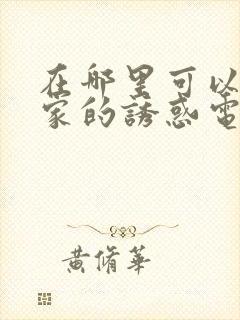 在哪里可以
家的誘惑電
黄脩華